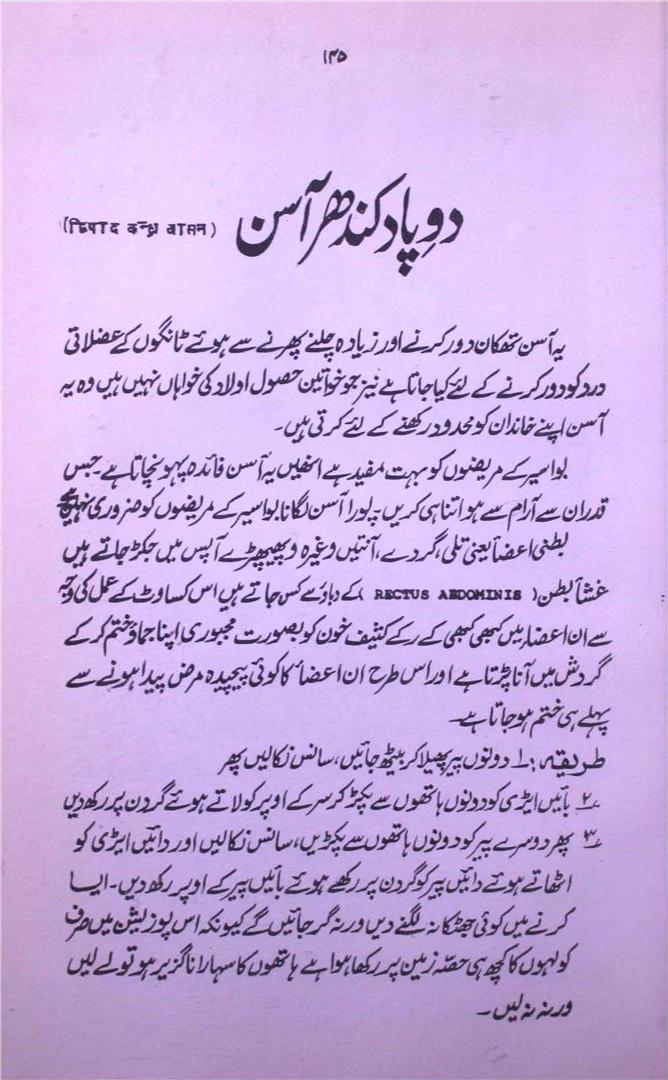 ۱۴۵
دوِپاد کندھر آسن (द्विपाद कन्ध्र आसन)
یہ آسن تھکان دور کرنے اور زیادہ چلنے پھرنے سے ہوئے ٹانگوں کے عضلاتی
درد کو دور کرنے کے لئے کیا جاتا ہے نیز جو خواتین حصول اولاد کی خواہاں نہیں ہیں وہ یہ
آسن اپنے خاندان کو محدود رکھنے کے لئے کرتی ہیں۔
بواسیر کے مریضوں کو بہت مفید ہے انھیں یہ آسن فائدہ پہونچاتا ہے۔ جس
قدر ان سے آرام سے ہو اتنا ہی کریں۔ پورا آسن لگانا بواسیر کے مریضوں کو ضروری نہیں ہے
بطنی اعضأ یعنی تلی، گردے، آنتیں وغیرہ و پھیپھڑے آپس میں جکڑ جاتے ہیں
غشأ بطن (RECTUS ABDOMINIS) کے دباؤ سے کس جاتے ہیں اس کساوٹ کے عمل کی وجہ
سے ان اعضأ میں کبھی کبھی کے رکے کثیف خون کو بصورت مجبوری اپنا جماؤ ختم کر کے
گردش میں آنا پڑتا ہے اور اس طرح ان اعضأ کا کوئی پیچیدہ مرض پیدا ہونے سے
پہلے ہی ختم ہو جاتا ہے۔
طریقہ: ۱؎ دونوں پیر پھیلا کر بیٹھ جائیں، سانس نکالیں پھر
۲؎ بائیں ایڑی کو دونوں ہاتھوں سے پکڑ کر سر کے اوپر کو لاتے ہوئے گردن پر رکھ دیں
۳؎ پھر دوسرے پیر کو دونوں ہاتھوں سے پکڑیں، سانس نکالیں اور دائیں ایڑی کو
اٹھاتے ہوئے دائیں پیر کو گردن پر رکھے ہوئے بائیں پیر کے اوپر رکھ دیں۔ ایسا
کرنے میں کوئی جھٹکا نہ لگنے دیں ورنہ گر جائیں گے کیونکہ اس پوزیشن میں صرف
کولہوں کا کچھ ہی حصّہ زمین پر رکھا ہوا ہے ہاتھوں کا سہارا ناگزیر ہو تو لے لیں
ورنہ نہ لیں۔